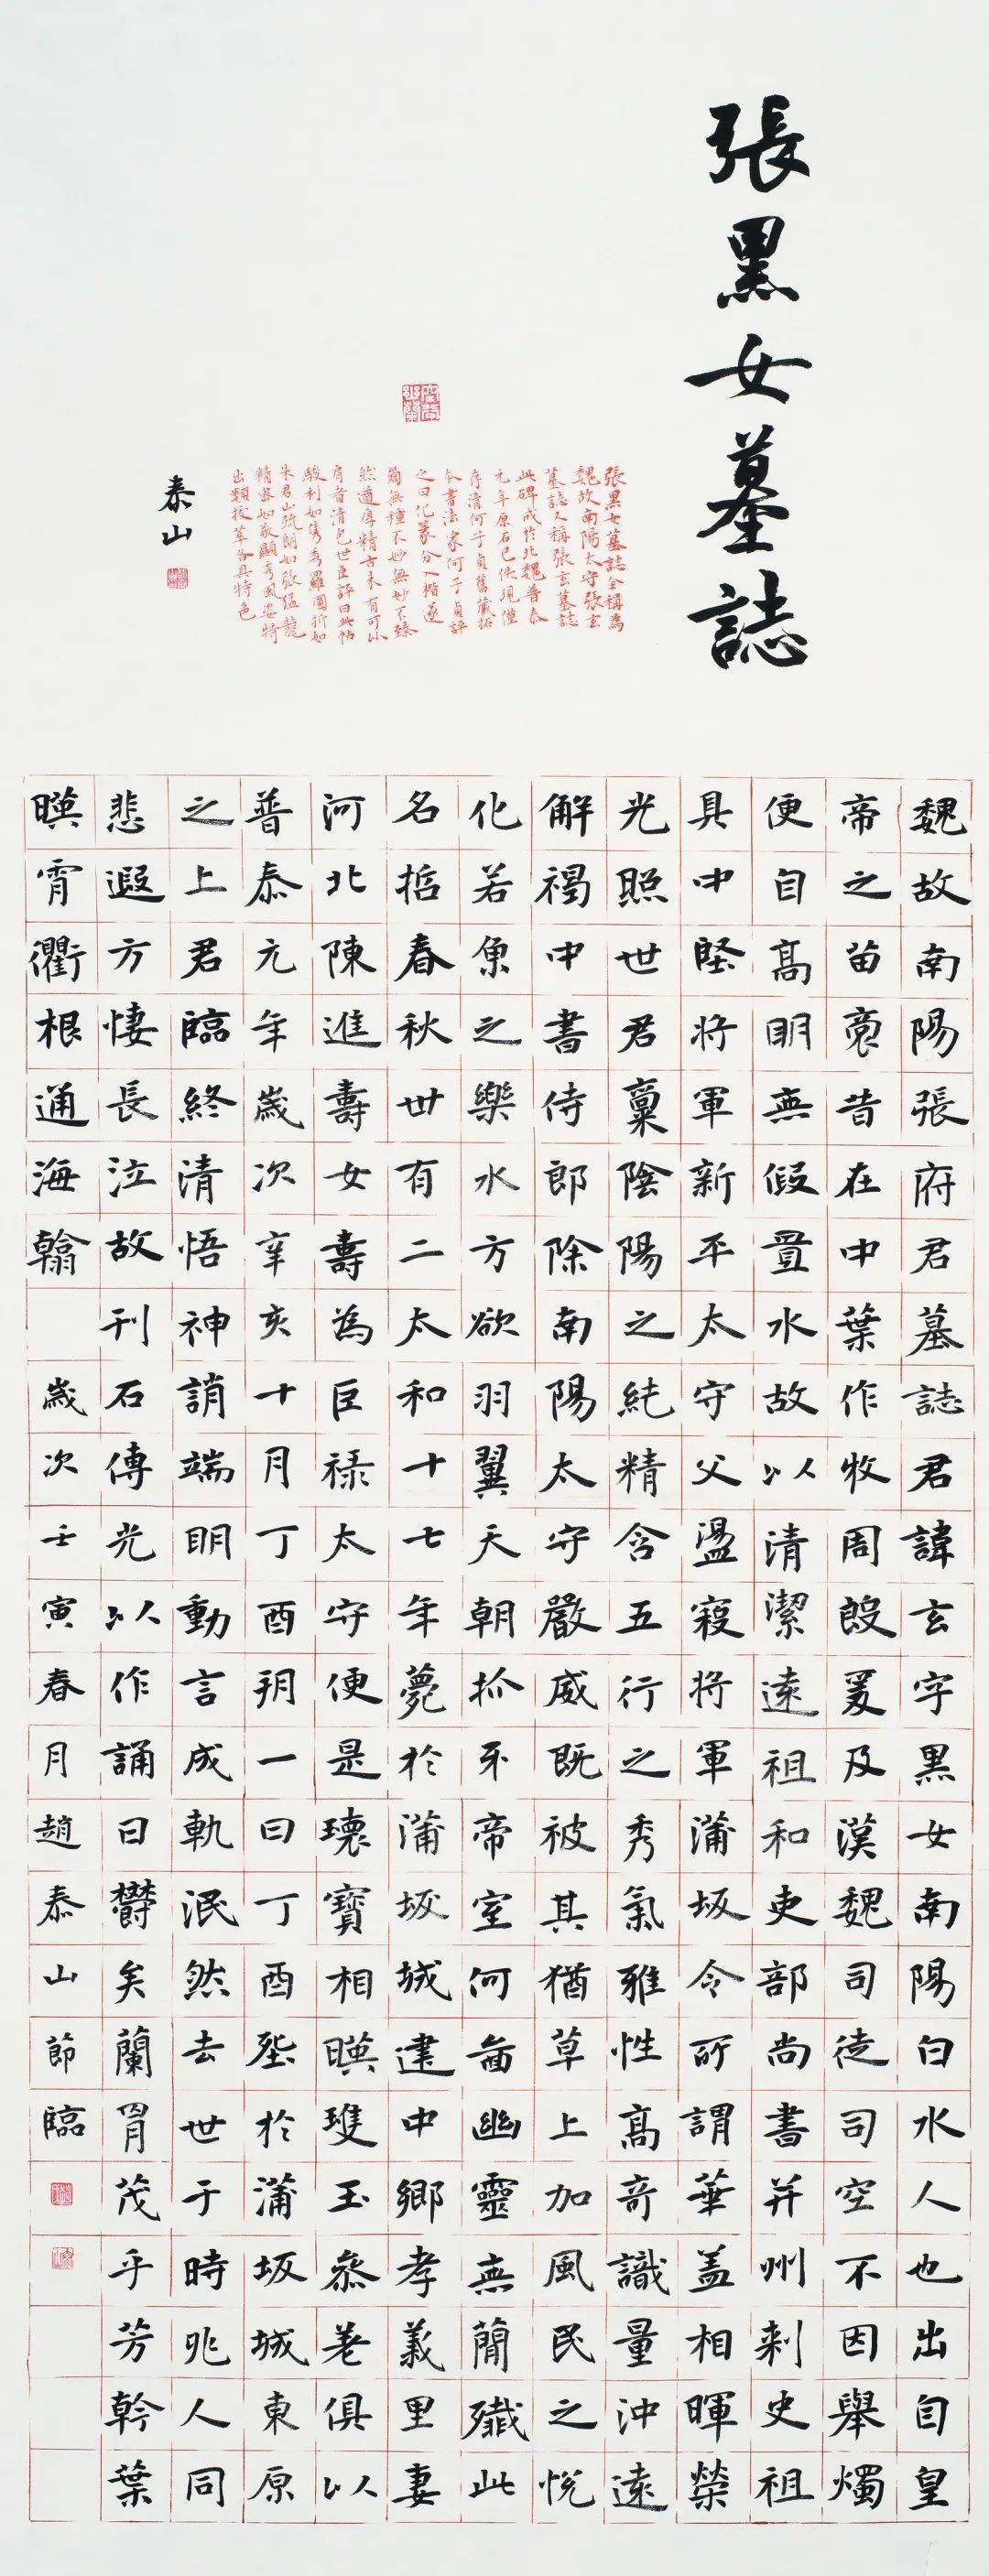 張黑女墓誌
張黑女墓誌全稱為
魏故南陽太守張玄
墓誌又稱張玄墓誌
此碑成於北魏普泰
元年原石已佚現僅
存清何子貞舊藏拓
本書法家何子貞評
之曰化篆分入楷遂
爾無種不妙無妙不臻
然遒厚精古未有可比
肩者清包世臣評曰此帖
駿利如雋秀羅圓折如
朱君山疏朗如張猛龍
精密如敬顯雋風姿特
出類拔萃各具特色
泰山
魏故南陽張府君墓誌君諱玄字黑女南陽白水人也出自皇
帝之苗裔昔在中葉作牧周殷爰及漢魏司徒司空不因舉燭
便自高明無假置水故以清潔遠祖和吏部尚書并州刺史祖
具中堅將軍新平太守父盪寇將軍蒲坂令所謂華蓋相暉榮
光照世君稟陰陽之純精含五行之秀氣雅性高奇識量沖遠
解褐中書侍郎除南陽太守嚴威既被其猶草上加風民之悅
化若魚之樂水方欲羽翼天朝抓牙帝室何啚幽靈無簡殲此
名哲春秋卅有二太和十七年薨於蒲坂城建中鄉孝義里妻
河北陳進壽女壽為巨祿太守便是瓌寶相暎瓊玉參差俱以
普泰元年歲次辛亥十月丁酉朔一日丁酉塟於蒲坂城東原
之上君臨終清悟神誚端明動言成軌泯然去世于時兆人同
悲遐方悽長泣故刊石傳光以作誦曰鬱矣蘭胃茂乎芳幹葉
暎霄衢根通海翰 歲次壬寅春月趙泰山節臨